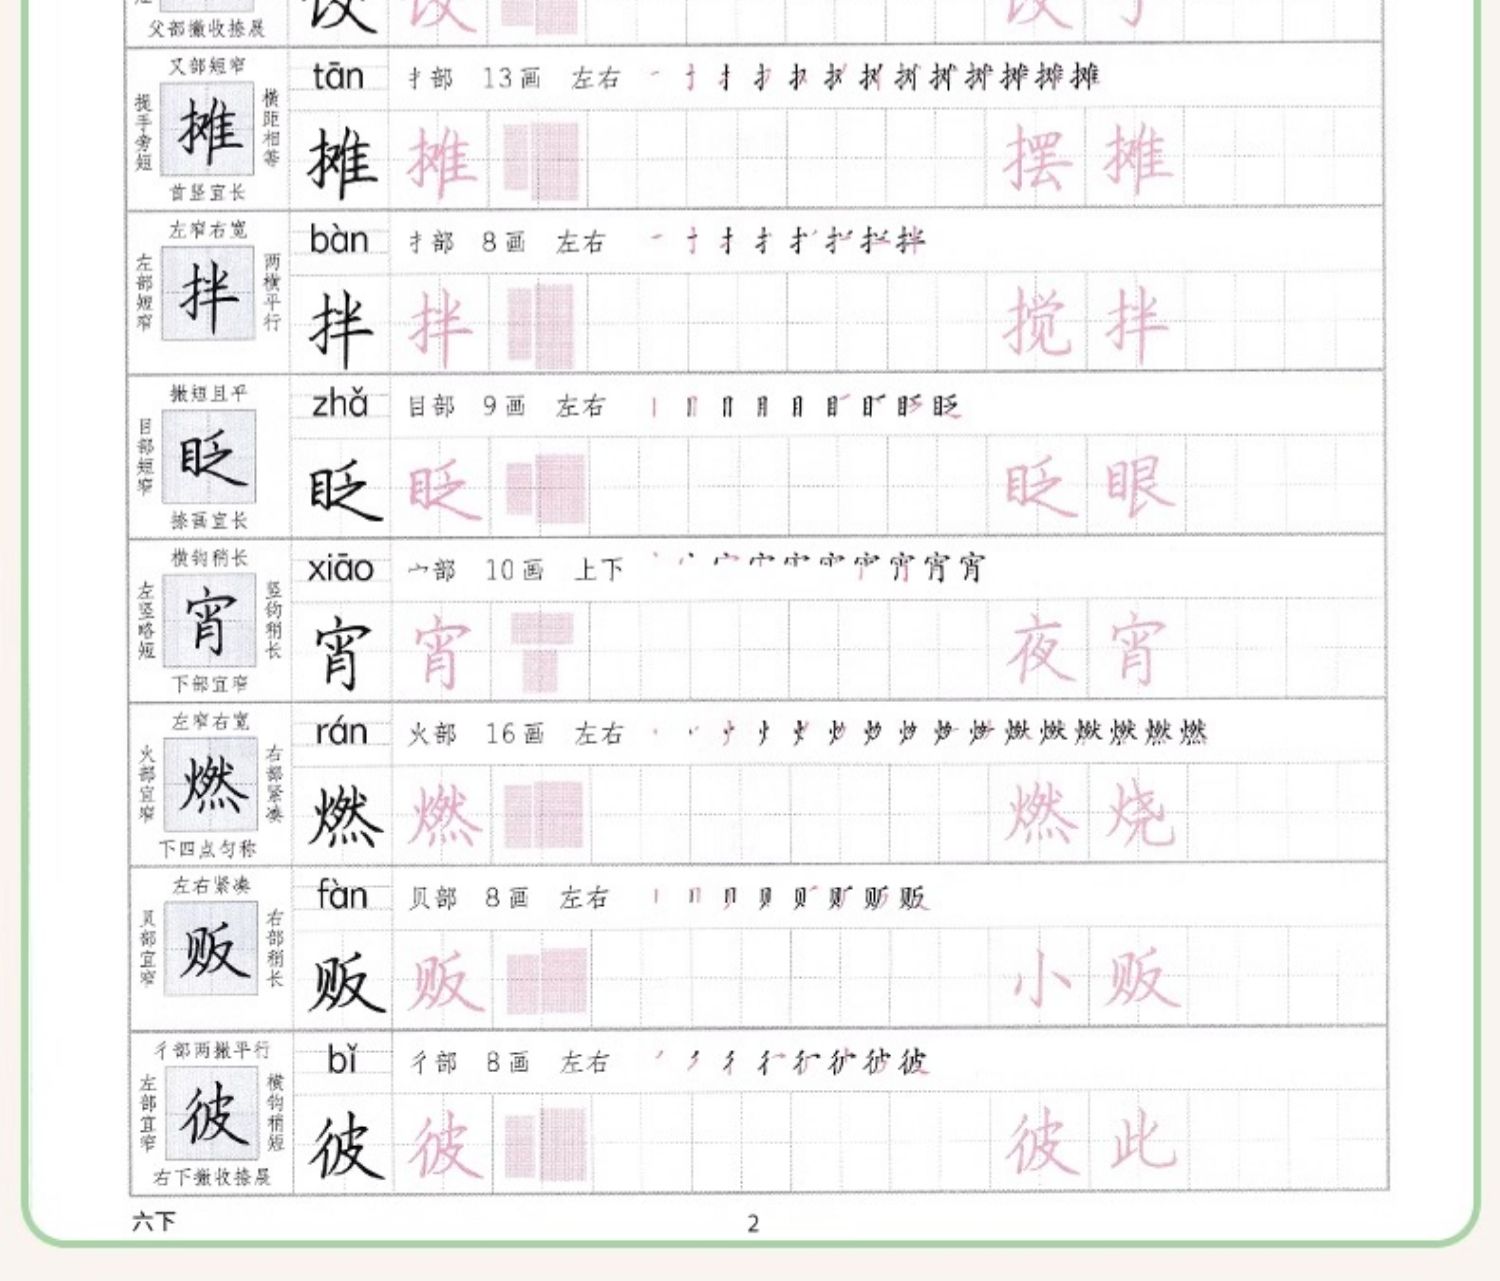 父部撇收捺展
又部短窄
提手旁短
摊
横距相等
首竖宜长
tān 扌部 13画 左右
摊 摊 摆摊
左窄右宽
左部短窄
拌
两横平行
bàn 扌部 8画 左右
拌 拌 搅拌
撇短且平
目部短窄
眨
捺画宜长
zhǎ 目部 9画 左右
眨 眨 眨眼
横钩稍长
左竖略短
宵
竖钩稍长
下部宜窄
xiāo 宀部 10画 上下
宵 宵 夜宵
左窄右宽
火部宜窄
燃
右部紧凑
下四点匀称
rán 火部 16画 左右
燃 燃 燃烧
左右紧凑
贝部宜窄
贩
右部稍长
fàn 贝部 8画 左右
贩 贩 小贩
彳部两撇平行
左部宜窄
彼
横钩稍短
右下撇收捺展
bǐ 彳部 8画 左右
彼 彼 彼此
六下 2